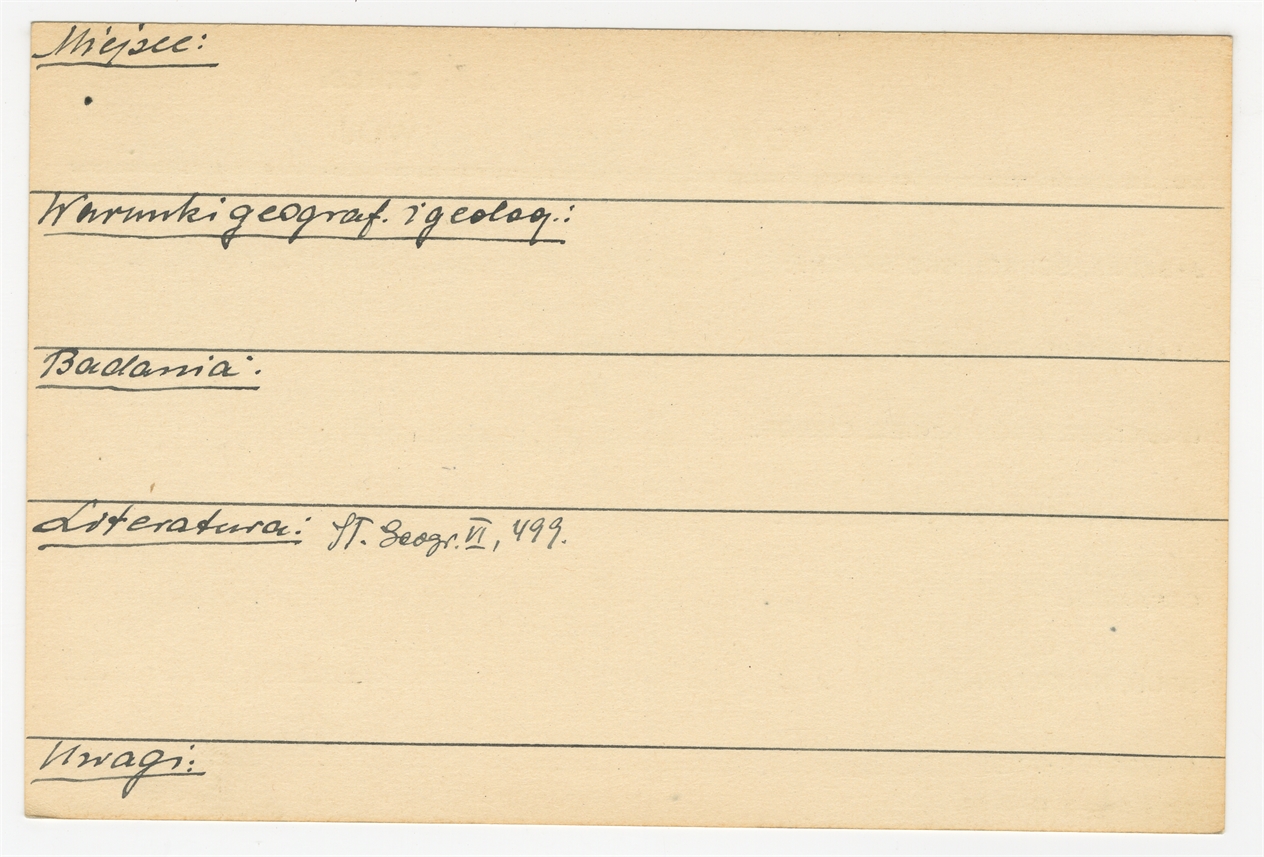 Miejsce:
Warunki geograf. i geolog.:
Badania:
Literatura: Sł. Geogr. VI, 499.
Uwagi: